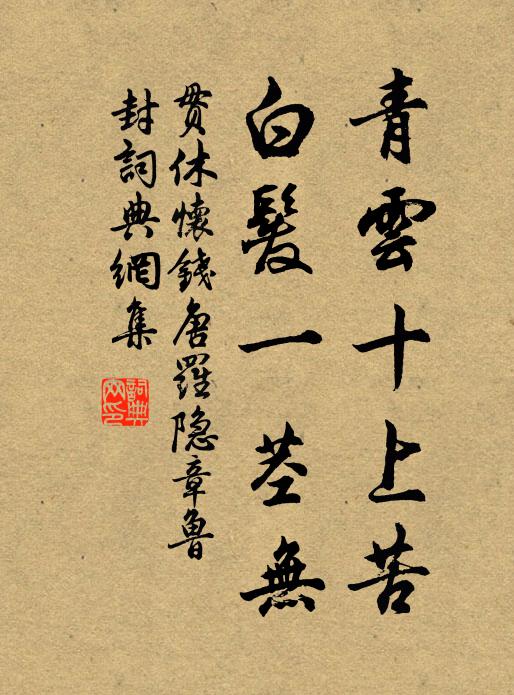 青雲十上苦
白髮一莖無
貫休懷錢唐羅隐章魯
封詞典網集
詞典網印